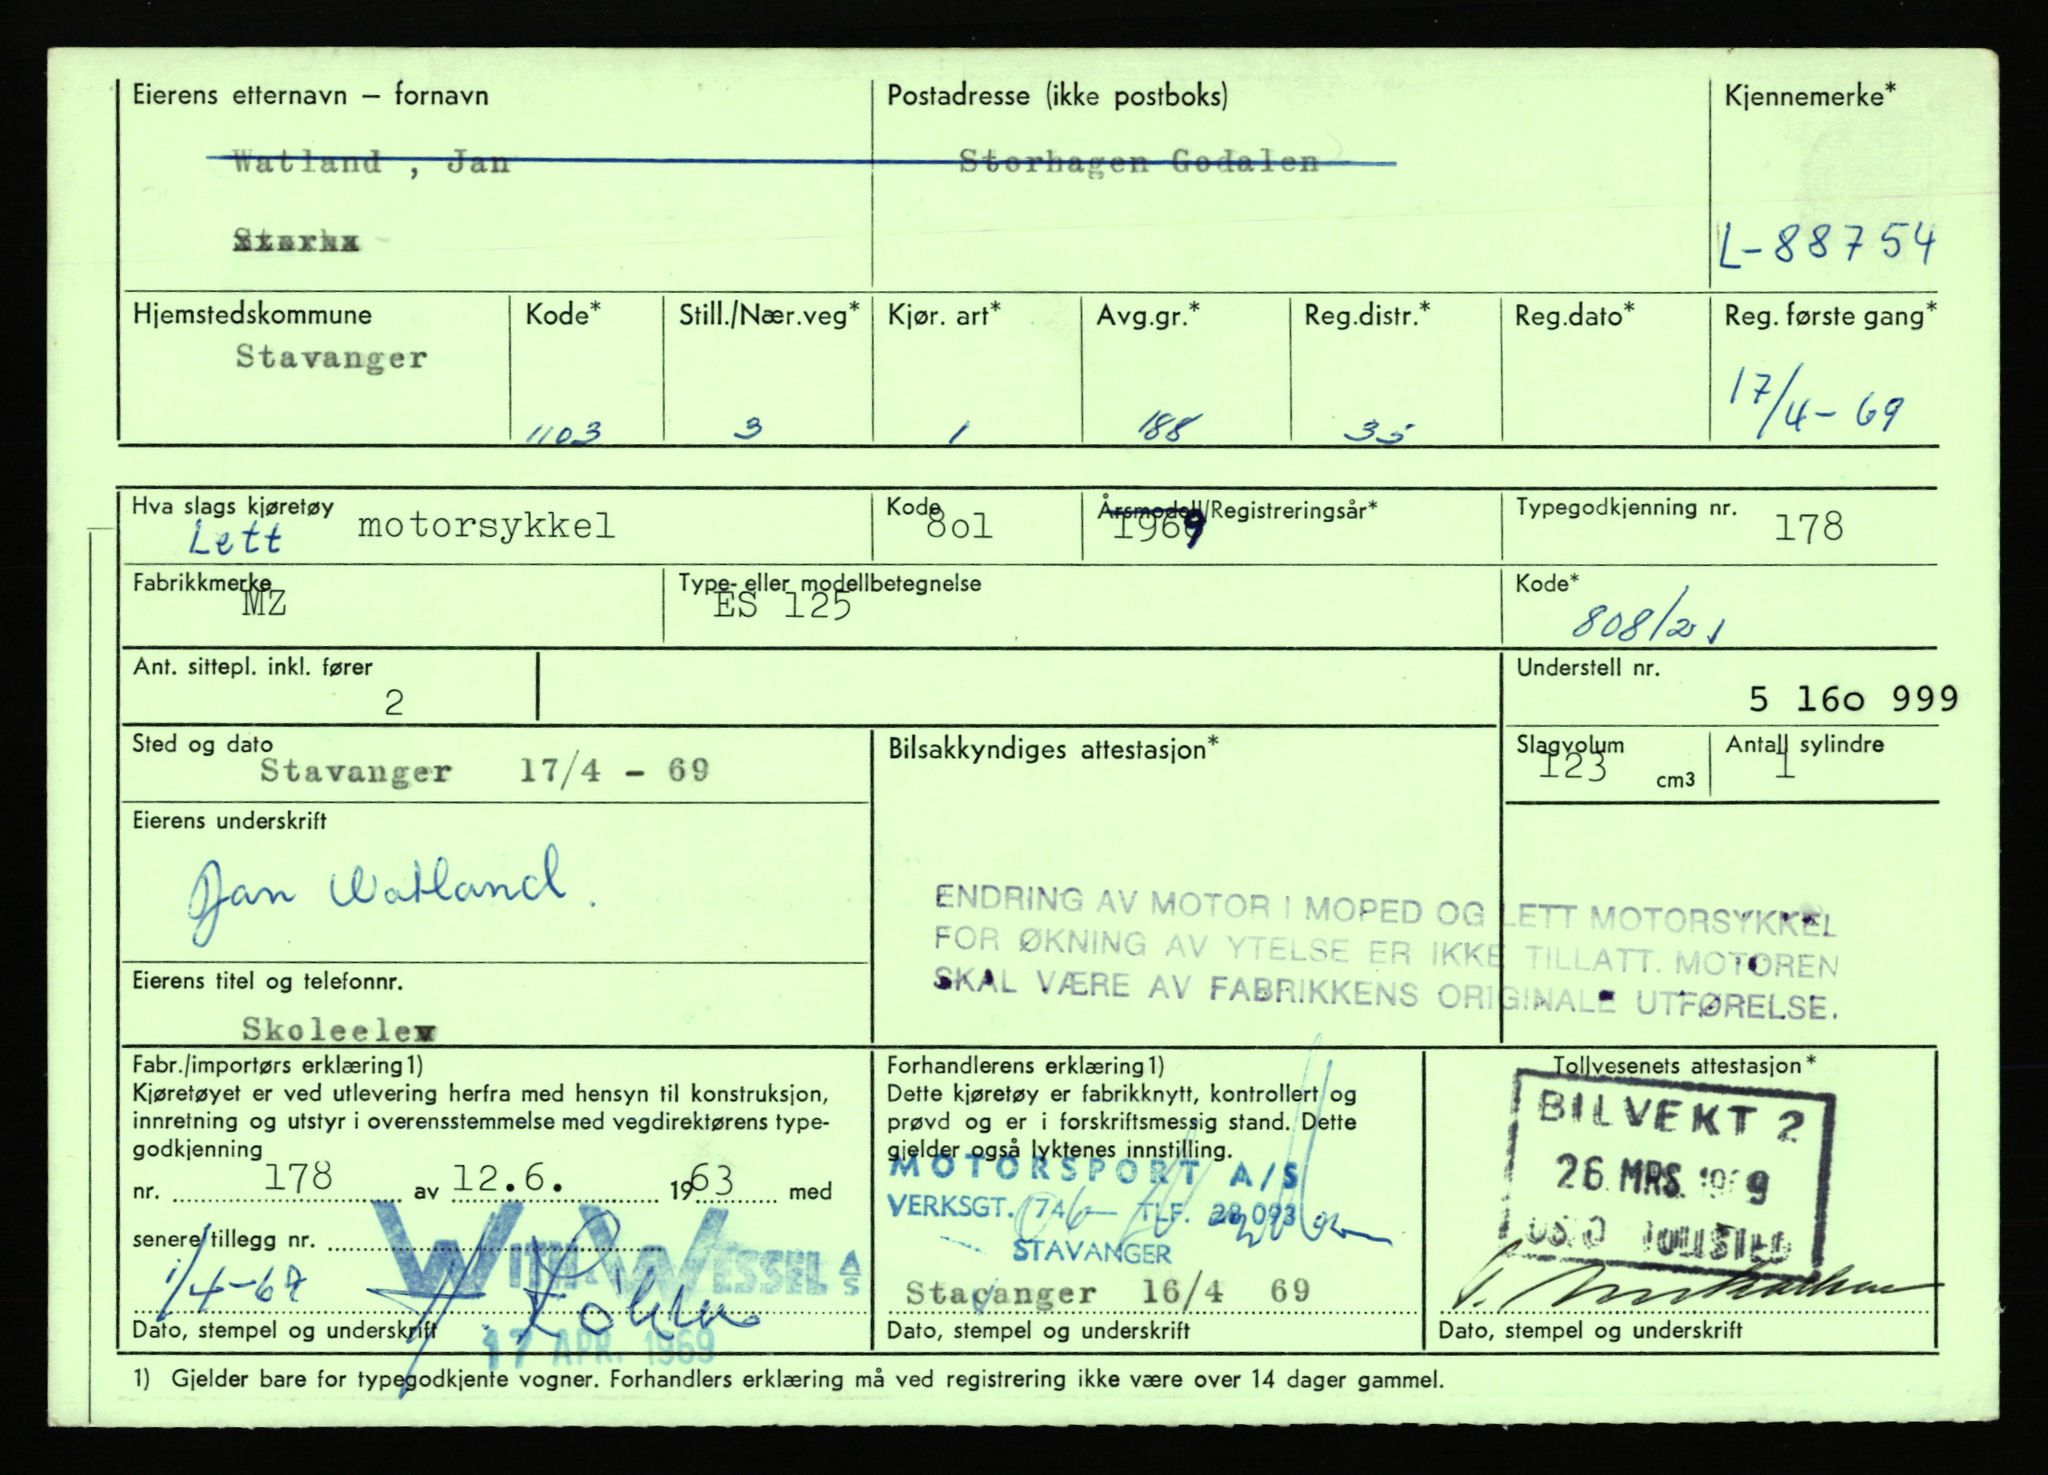 Eierens etternavn – fornavn
Postadresse (ikke postboks)
Kjennemerke*
Watland , Jan
Storhagen Godalen
L-88754
Hjemstedskommune
Kode*
Still./Nær.veg*
Kjør. art*
Avg.gr.*
Reg.distr.*
Reg.dato*
Reg. første gang*
Stavanger
1103
3
1
188
35
17/4-69
Hva slags kjøretøy
Kode
Årsmodell/Registreringsår*
Typegodkjenning nr.
Lett motorsykkel
8o1
1969
178
Fabrikkmerke
Type- eller modellbetegnelse
Kode*
MZ
ES 125
808/201
Ant. sittepl. inkl. fører
Understell nr.
2
5 16o 999
Sted og dato
Bilsakkyndiges attestasjon*
Slagvolum
Antall sylindre
Stavanger 17/4 - 69
123 cm3
1
Eierens underskrift
Jan Watland.
ENDRING AV MOTOR I MOPED OG LETT MOTORSYKKEL
FOR ØKNING AV YTELSE ER IKKE TILLATT. MOTOREN
SKAL VÆRE AV FABRIKKENS ORIGINALE UTFØRELSE.
Eierens titel og telefonnr.
Skoleelev
Fabr./importørs erklæring1)
Kjøretøyet er ved utlevering herfra med hensyn til konstruksjon,
innretning og utstyr i overensstemmelse med vegdirektørens type-
godkjenning
nr. 178 av 12.6. 1963 med
senere tillegg nr.
1/4-67
WITH & WESSEL A/S
17 APR. 1969
Dato, stempel og underskrift
Forhandlerens erklæring1)
Dette kjøretøy er fabrikknytt, kontrollert og
prøvd og er i forskriftsmessig stand. Dette
gjelder også lyktenes innstilling.
MOTORSPORT A/S
VERKSGT. 74b TLF. 28 093
STAVANGER
Stavanger 16/4 69
Dato, stempel og underskrift
Tollvesenets attestasjon*
BILVEKT 2
26. MRS. 1969
OSLO TOLLSTED
Dato, stempel og underskrift
1) Gjelder bare for typegodkjente vogner. Forhandlers erklæring må ved registrering ikke være over 14 dager gammel.